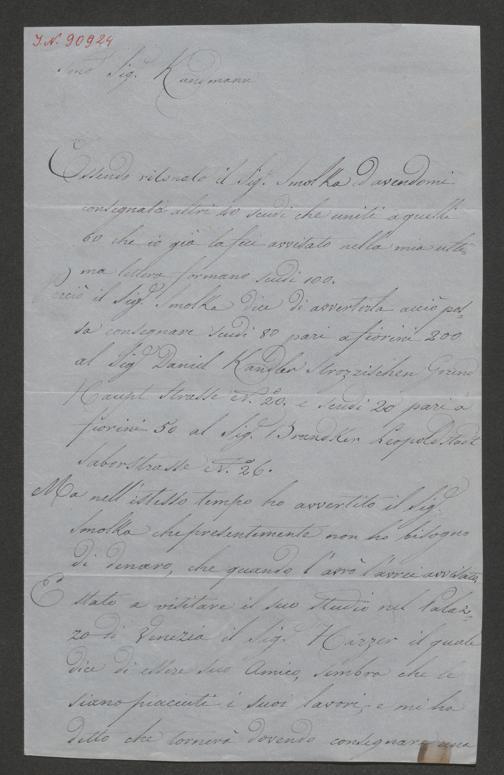 I.N. 90924
Sigr. Kausmann
Essendo ritornato il Sigr. Smolka ed avendomi
consegnate altri 40 scudi che uniti a quelli
60 che io già la feci avvisato nella mia ulti-
ma lettera formano scudi 100.
Perciò il Sigr. Smolka dice di avvertirla acciò pos-
sa consegnare scudi 80 pari a fiorini 200
al Sigr. Daniel Kandler Strozzischen Grund
Haupt Strasse No. 20. e scudi 20 pari a
fiorini 50 al Sigr. Leopoldstadt
Taborstrasse No. 26.
Ma nell'istesso tempo ho avvertito il Sigr.
Smolka che presentemente non ho bisogno
di denaro, che quando l'avrò l'avrei avvisato,
È stato a visitare il suo Studio nel Palaz-
zo di Venezia il Sigr. Harzer il quale
dice di essere suo Amico, sembra che le
siano piacciuti i suoi lavori, e mi ha
detto che tornerà dovendo consegnare una